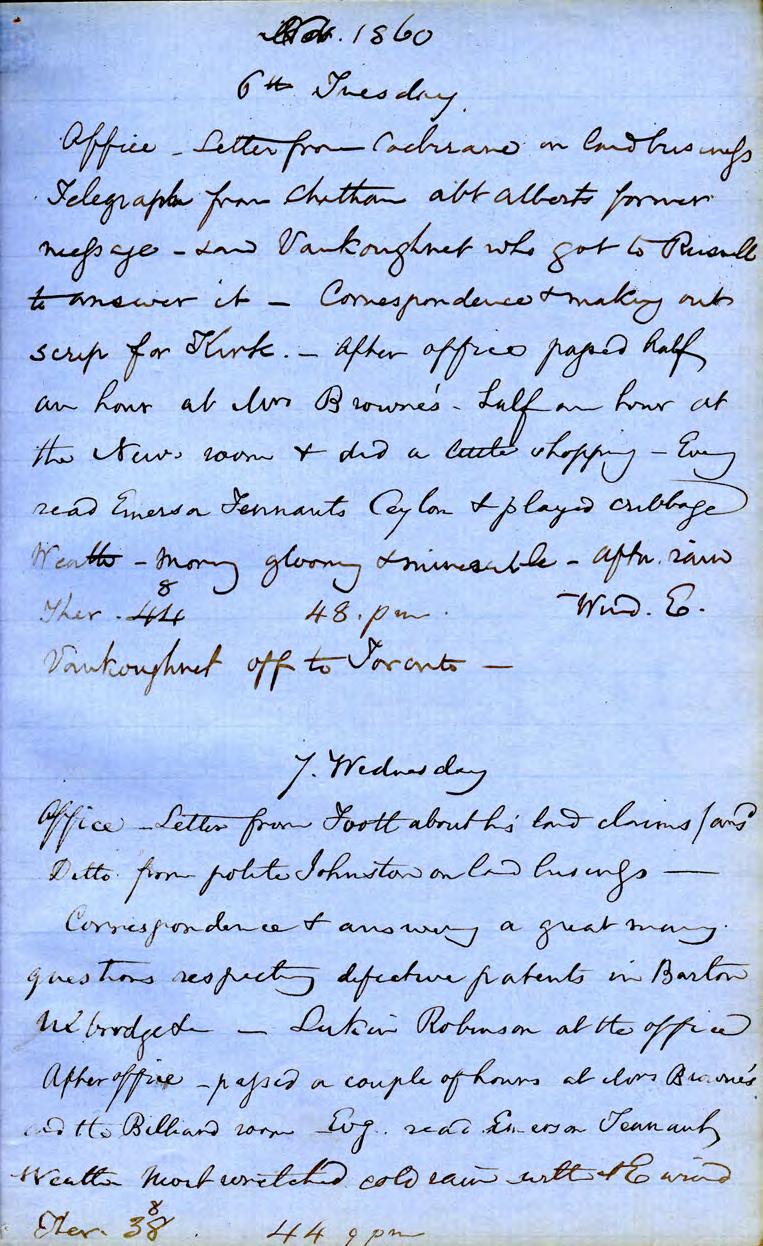 Nov. 1860
6th Tuesday.
Office - Letter from Cochrane on land business
Telegraph from Chatham abt Alberts former
message - saw Vankoughnet who got to Russell
to answer it - Correspondence & making out
scrip for Kirk. - After office passed half
an hour at Mrs Browne's - Half an hour at
the News room & did a little shopping - Eveg
read Emerson Tennants Ceylon & played cribbage
Weath - Morng gloomy & miserable - aftn. rain
Ther. 44 8 48. pm. Wind. E.
Vankoughnet off to Toronto -
7. Wednesday
Office - Letter from Foott about his land claims / ansd
Ditto from polite Johnston on land business -
Correspondence & answerg a great many
questions respecting defective patents in Barton
Uxbridge &c - Lukin Robinson at the office
After office - passed a couple of hours at Mrs Browne's
and the Billiard room Evg. read Emerson Tennant
Weather Most wretched cold rain with E wind
Ther. 38 8 44 9 pm